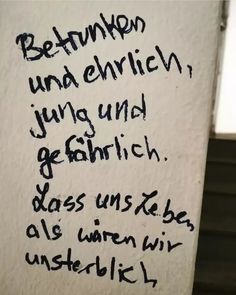 Betrunken
und ehrlich,
jung und
gefährlich.
Lass uns Leben
als wären wir
unsterblich